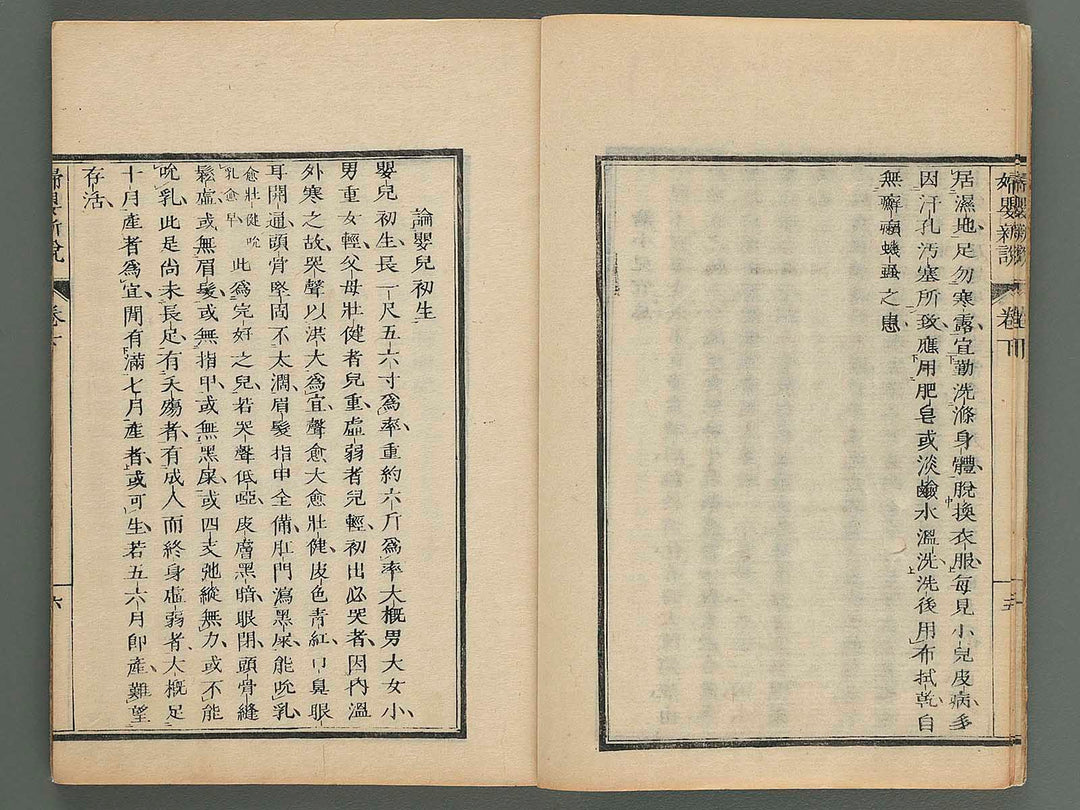 婦嬰新說 卷下
居濕地足勿寒露宜勤洗滌身體脫換衣服每見小兒皮病多
因汗孔汚塞所致應用肥皂或淡鹼水溫洗洗後用布拭乾自
無癬癩蟣蝨之患
論嬰兒初生
嬰兒初生長一尺五六寸爲率重約六斤爲率大槪男大女小
男重女輕父母壯健者兒重虛弱者兒輕初出必哭者因內溫
外寒之故哭聲以洪大爲宜聲愈大愈壯健皮色靑紅口鼻眼
耳開通頭骨堅固不太濶眉髮指甲全備肛門瀉黑屎能吮乳
愈壯健吮
乳愈早
此爲完好之兒若哭聲低啞皮膚黑暗眼閉頭骨縫
鬆虛或無眉髮或無指甲或無黑屎或四支弛縱無力或不能
吮乳此是尙未長足有夭殤者有成人而終身虛弱者大槪足
十月產者爲宜間有滿七月產者或可生若五六月卽產難望
存活
婦嬰新說
六